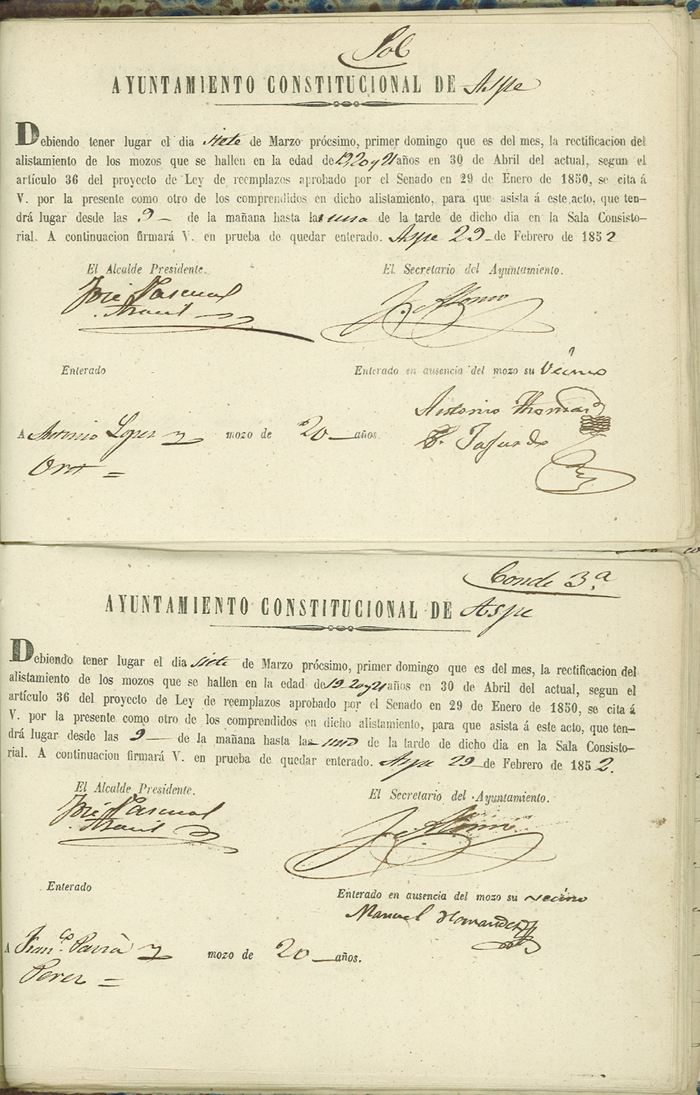 Sol
AYUNTAMIENTO CONSTITUCIONAL DE Aspe
Debiendo tener lugar el dia siete de Marzo prócsimo, primer domingo que es del mes, la rectificacion del
alistamiento de los mozos que se hallen en la edad de 19 20 y 21 años en 30 de Abril del actual, segun el
artículo 36 del proyecto de Ley de reemplazos aprobado por el Senado en 29 de Enero de 1850, se cita á
V. por la presente como otro de los comprendidos en dicho alistamiento, para que asista á este acto, que ten-
drá lugar desde las 9 de la mañana hasta la una de la tarde de dicho dia en la Sala Consisto-
rial. A continuacion firmará V. en prueba de quedar enterado. Aspe 29 de Febrero de 1852
El Alcalde Presidente. El Secretario del Ayuntamiento.
José Pascual
Alonso
Enterado Enterado en ausencia del mozo su Vecino
Antonio
A Antonio Lopez y mozo de 20 años.
Conde 3ª
AYUNTAMIENTO CONSTITUCIONAL DE Aspe
Debiendo tener lugar el dia siete de Marzo prócsimo, primer domingo que es del mes, la rectificacion del
alistamiento de los mozos que se hallen en la edad de 19 20 y 21 años en 30 de Abril del actual, segun el
artículo 36 del proyecto de Ley de reemplazos aprobado por el Senado en 29 de Enero de 1850, se cita á
V. por la presente como otro de los comprendidos en dicho alistamiento, para que asista á este acto, que ten-
drá lugar desde las 9 de la mañana hasta las una de la tarde de dicho dia en la Sala Consisto-
rial. A continuacion firmará V. en prueba de quedar enterado. Aspe 29 de Febrero de 1852.
El Alcalde Presidente. El Secretario del Ayuntamiento.
José Pascual
Alonso
Enterado Enterado en ausencia del mozo su vecino
Manuel
A y mozo de 20 años.
Perez